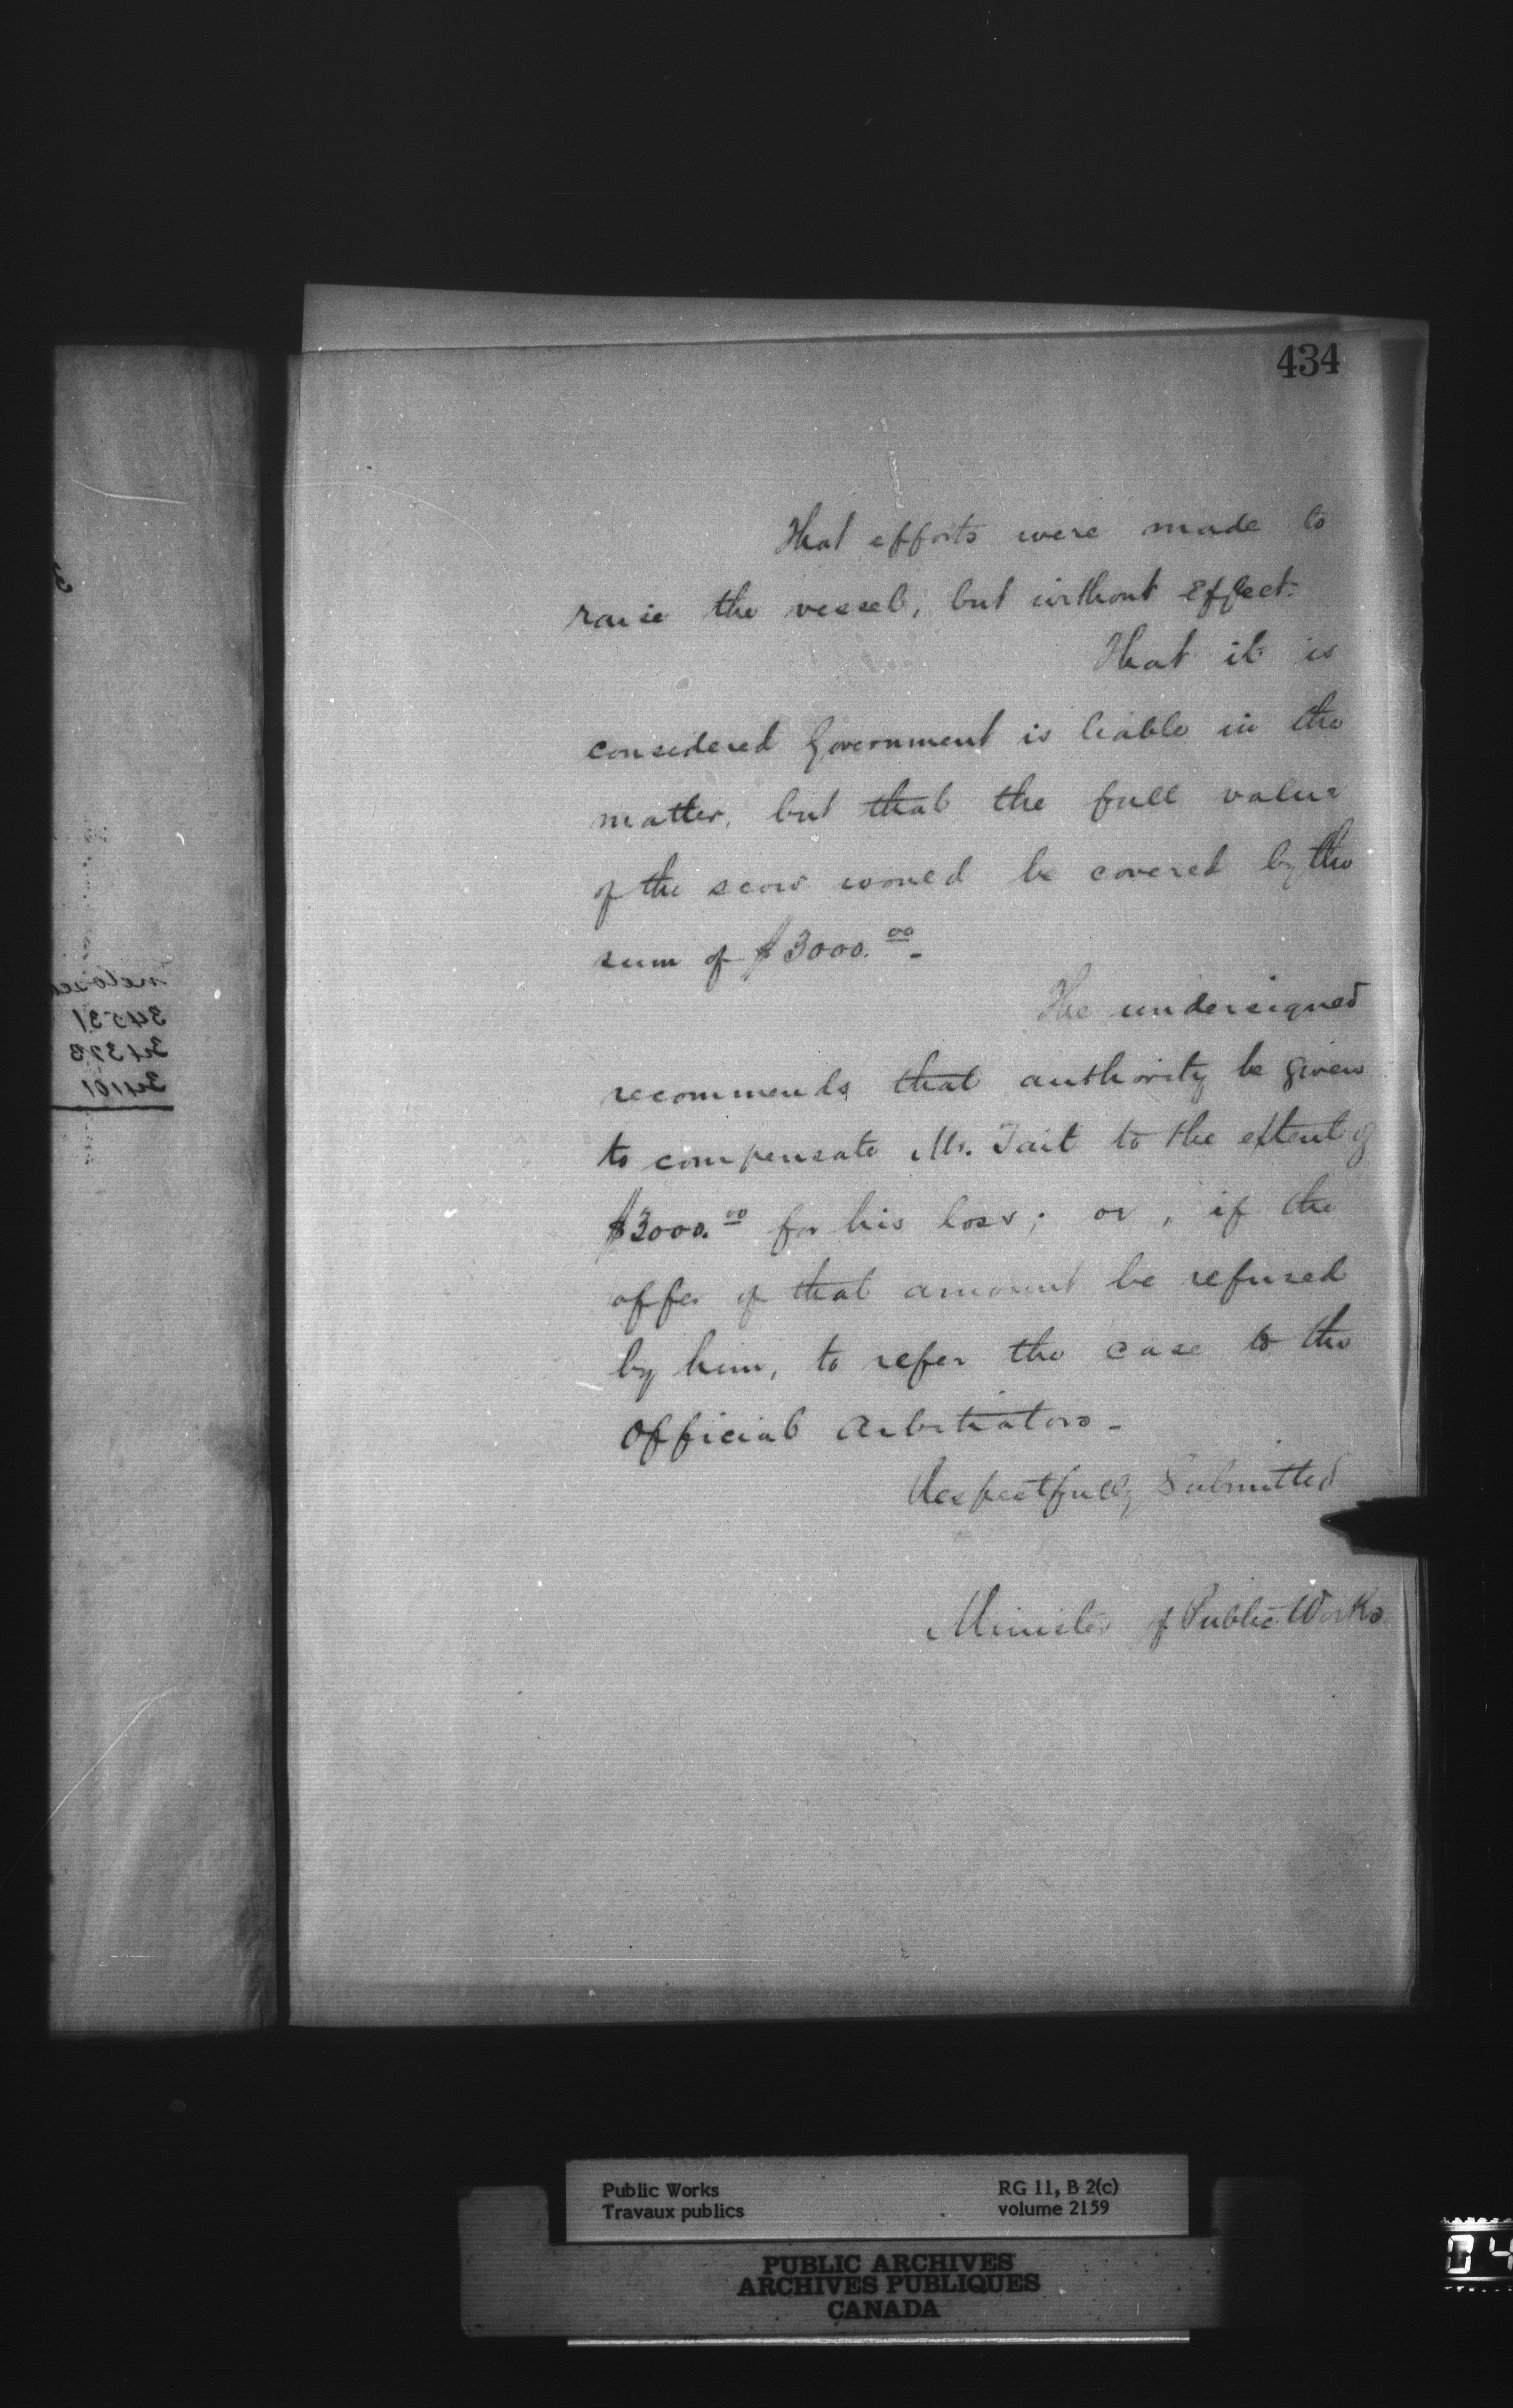 434
That efforts were made to
raise the vessel, but without effect.
That it is
considered Government is liable in the
matter, but that the full value
of the scow would be covered by the
sum of $3000.00-
The undersigned
recommends that authority be given
to compensate Mr. Tait to the extent of
$3000.00 for his loss; or, if the
offer of that amount be refused
by him, to refer the case to the
Official Arbitrators-
Respectfully Submitted
Minister of Public Works
34531
34101
Public Works
Travaux publics
RG 11, B 2(c)
volume 2159
PUBLIC ARCHIVES
ARCHIVES PUBLIQUES
CANADA
04